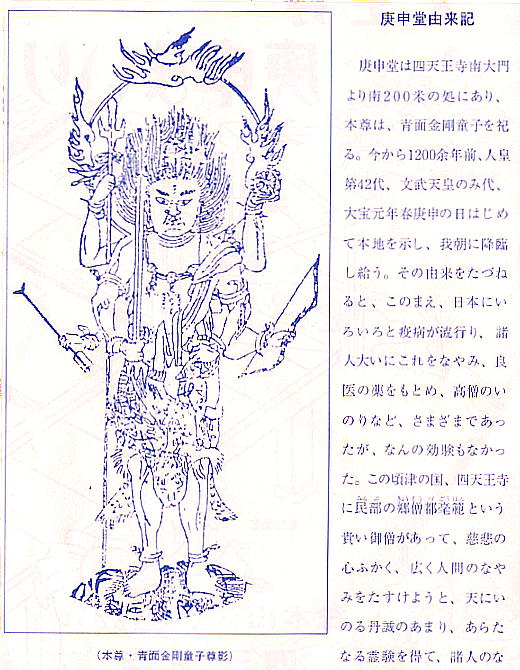 庚申堂由来記
庚申堂は四天王寺南大門
より南200米の処にあり、
本尊は、青面金剛童子を祀
る。今から1200余年前、人皇
第42代、文武天皇のみ代、
大宝元年春庚申の日はじめ
て本地を示し、我朝に降臨
し給う。その由来をたづね
ると、このまえ、日本にい
ろいろと疫病が流行り、諸
人大いにこれをなやみ、良
医の薬をもとめ、高僧のい
のりなど、さまざまであっ
たが、なんの効験もなかっ
た。この頃津の国、四天王寺
に民部の郷僧都毫範という
貴い御僧があって、慈悲の
心ふかく、広く人間のなや
みをたすけようと、天にい
のる丹誠のあまり、あらた
なる霊験を得て、諸人のな
(本尊・青面金剛童子尊影)